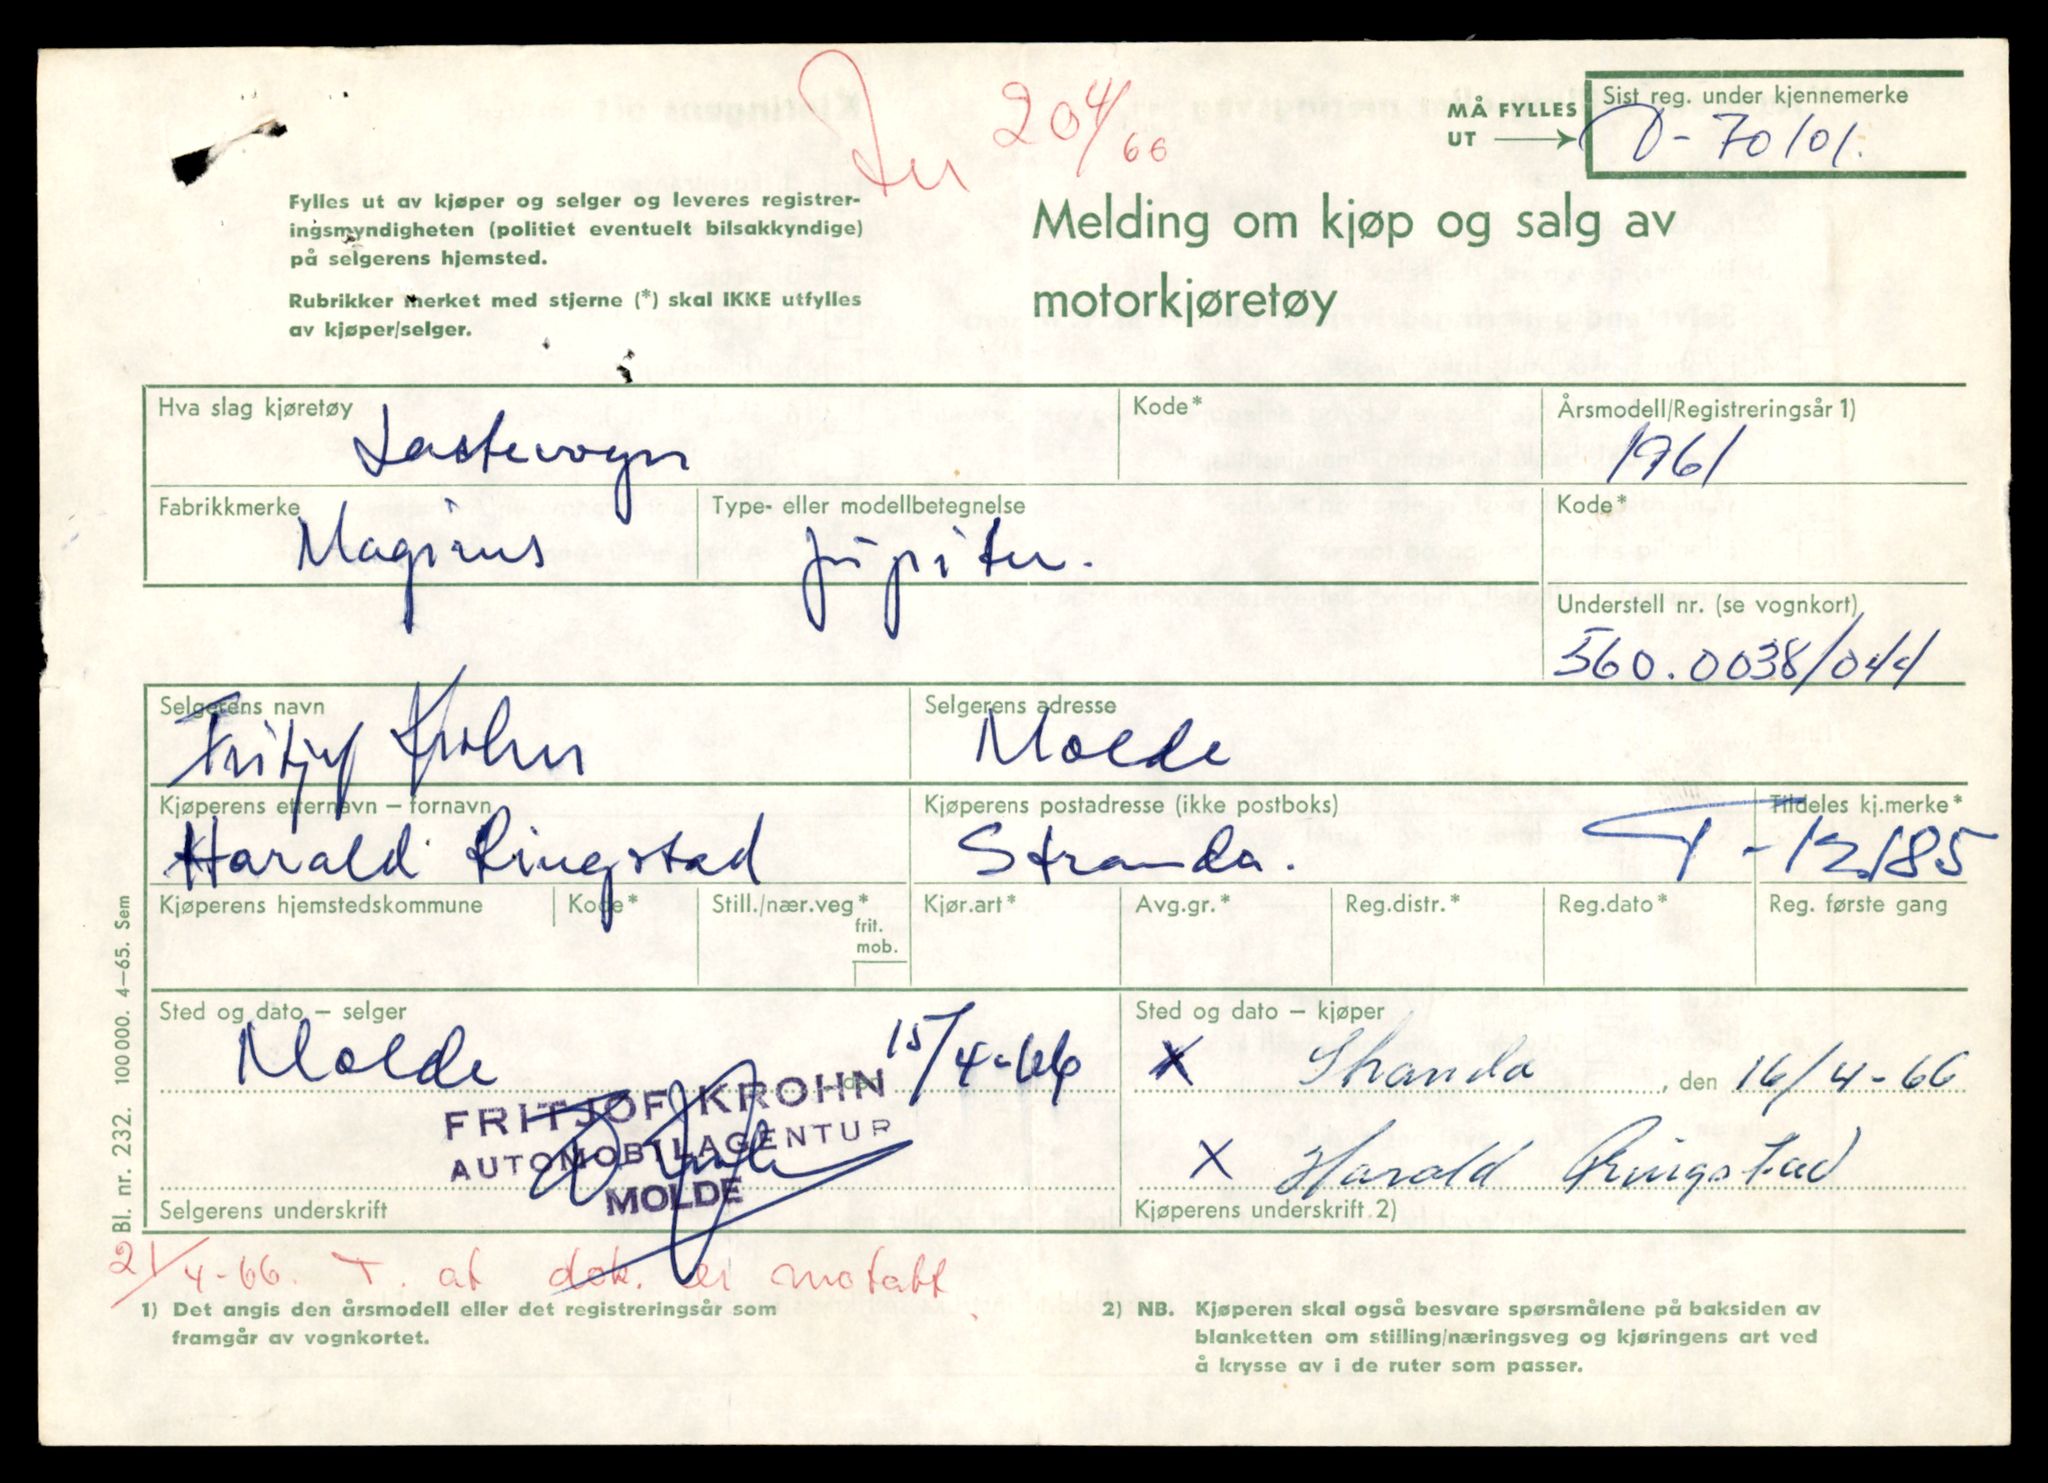 20/4 66
MÅ FYLLES UT
Sist reg. under kjennemerke
-70101.
Fylles ut av kjøper og selger og leveres registrer-
ingsmyndigheten (politiet eventuelt bilsakkyndige)
på selgerens hjemsted.
Rubrikker merket med stjerne (*) skal IKKE utfylles
av kjøper/selger.
Melding om kjøp og salg av
motorkjøretøy
Hva slag kjøretøy
Lastevogn
Kode*
Årsmodell/Registreringsår 1)
1961
Fabrikkmerke
Magirus
Type- eller modellbetegnelse
Jupiter.
Kode*
Understell nr. (se vognkort)
560.0038/044
Selgerens navn
Fritjof Krohn
Selgerens adresse
Molde
Kjøperens etternavn – fornavn
Harald Ringstad
Kjøperens postadresse (ikke postboks)
Stranda.
Tildeles kj.merke*
T-12185
Kjøperens hjemstedskommune
Kode*
Still./nær.veg*
frit.
mob.
Kjør.art*
Avg.gr.*
Reg.distr.*
Reg.dato*
Reg. første gang
Sted og dato – selger
Molde den 15/4-66
FRITJOF KROHN
AUTOMOBILAGENTUR
MOLDE
Selgerens underskrift
Sted og dato – kjøper
X Stranda, den 16/4-66
X Harald Ringstad
Kjøperens underskrift 2)
21/4-66. T. at dok. er motatt
1) Det angis den årsmodell eller det registreringsår som
framgår av vognkortet.
2) NB. Kjøperen skal også besvare spørsmålene på baksiden av
blanketten om stilling/næringsveg og kjøringens art ved
å krysse av i de ruter som passer.
Bl. nr. 232. 100 000. 4–65. Sem